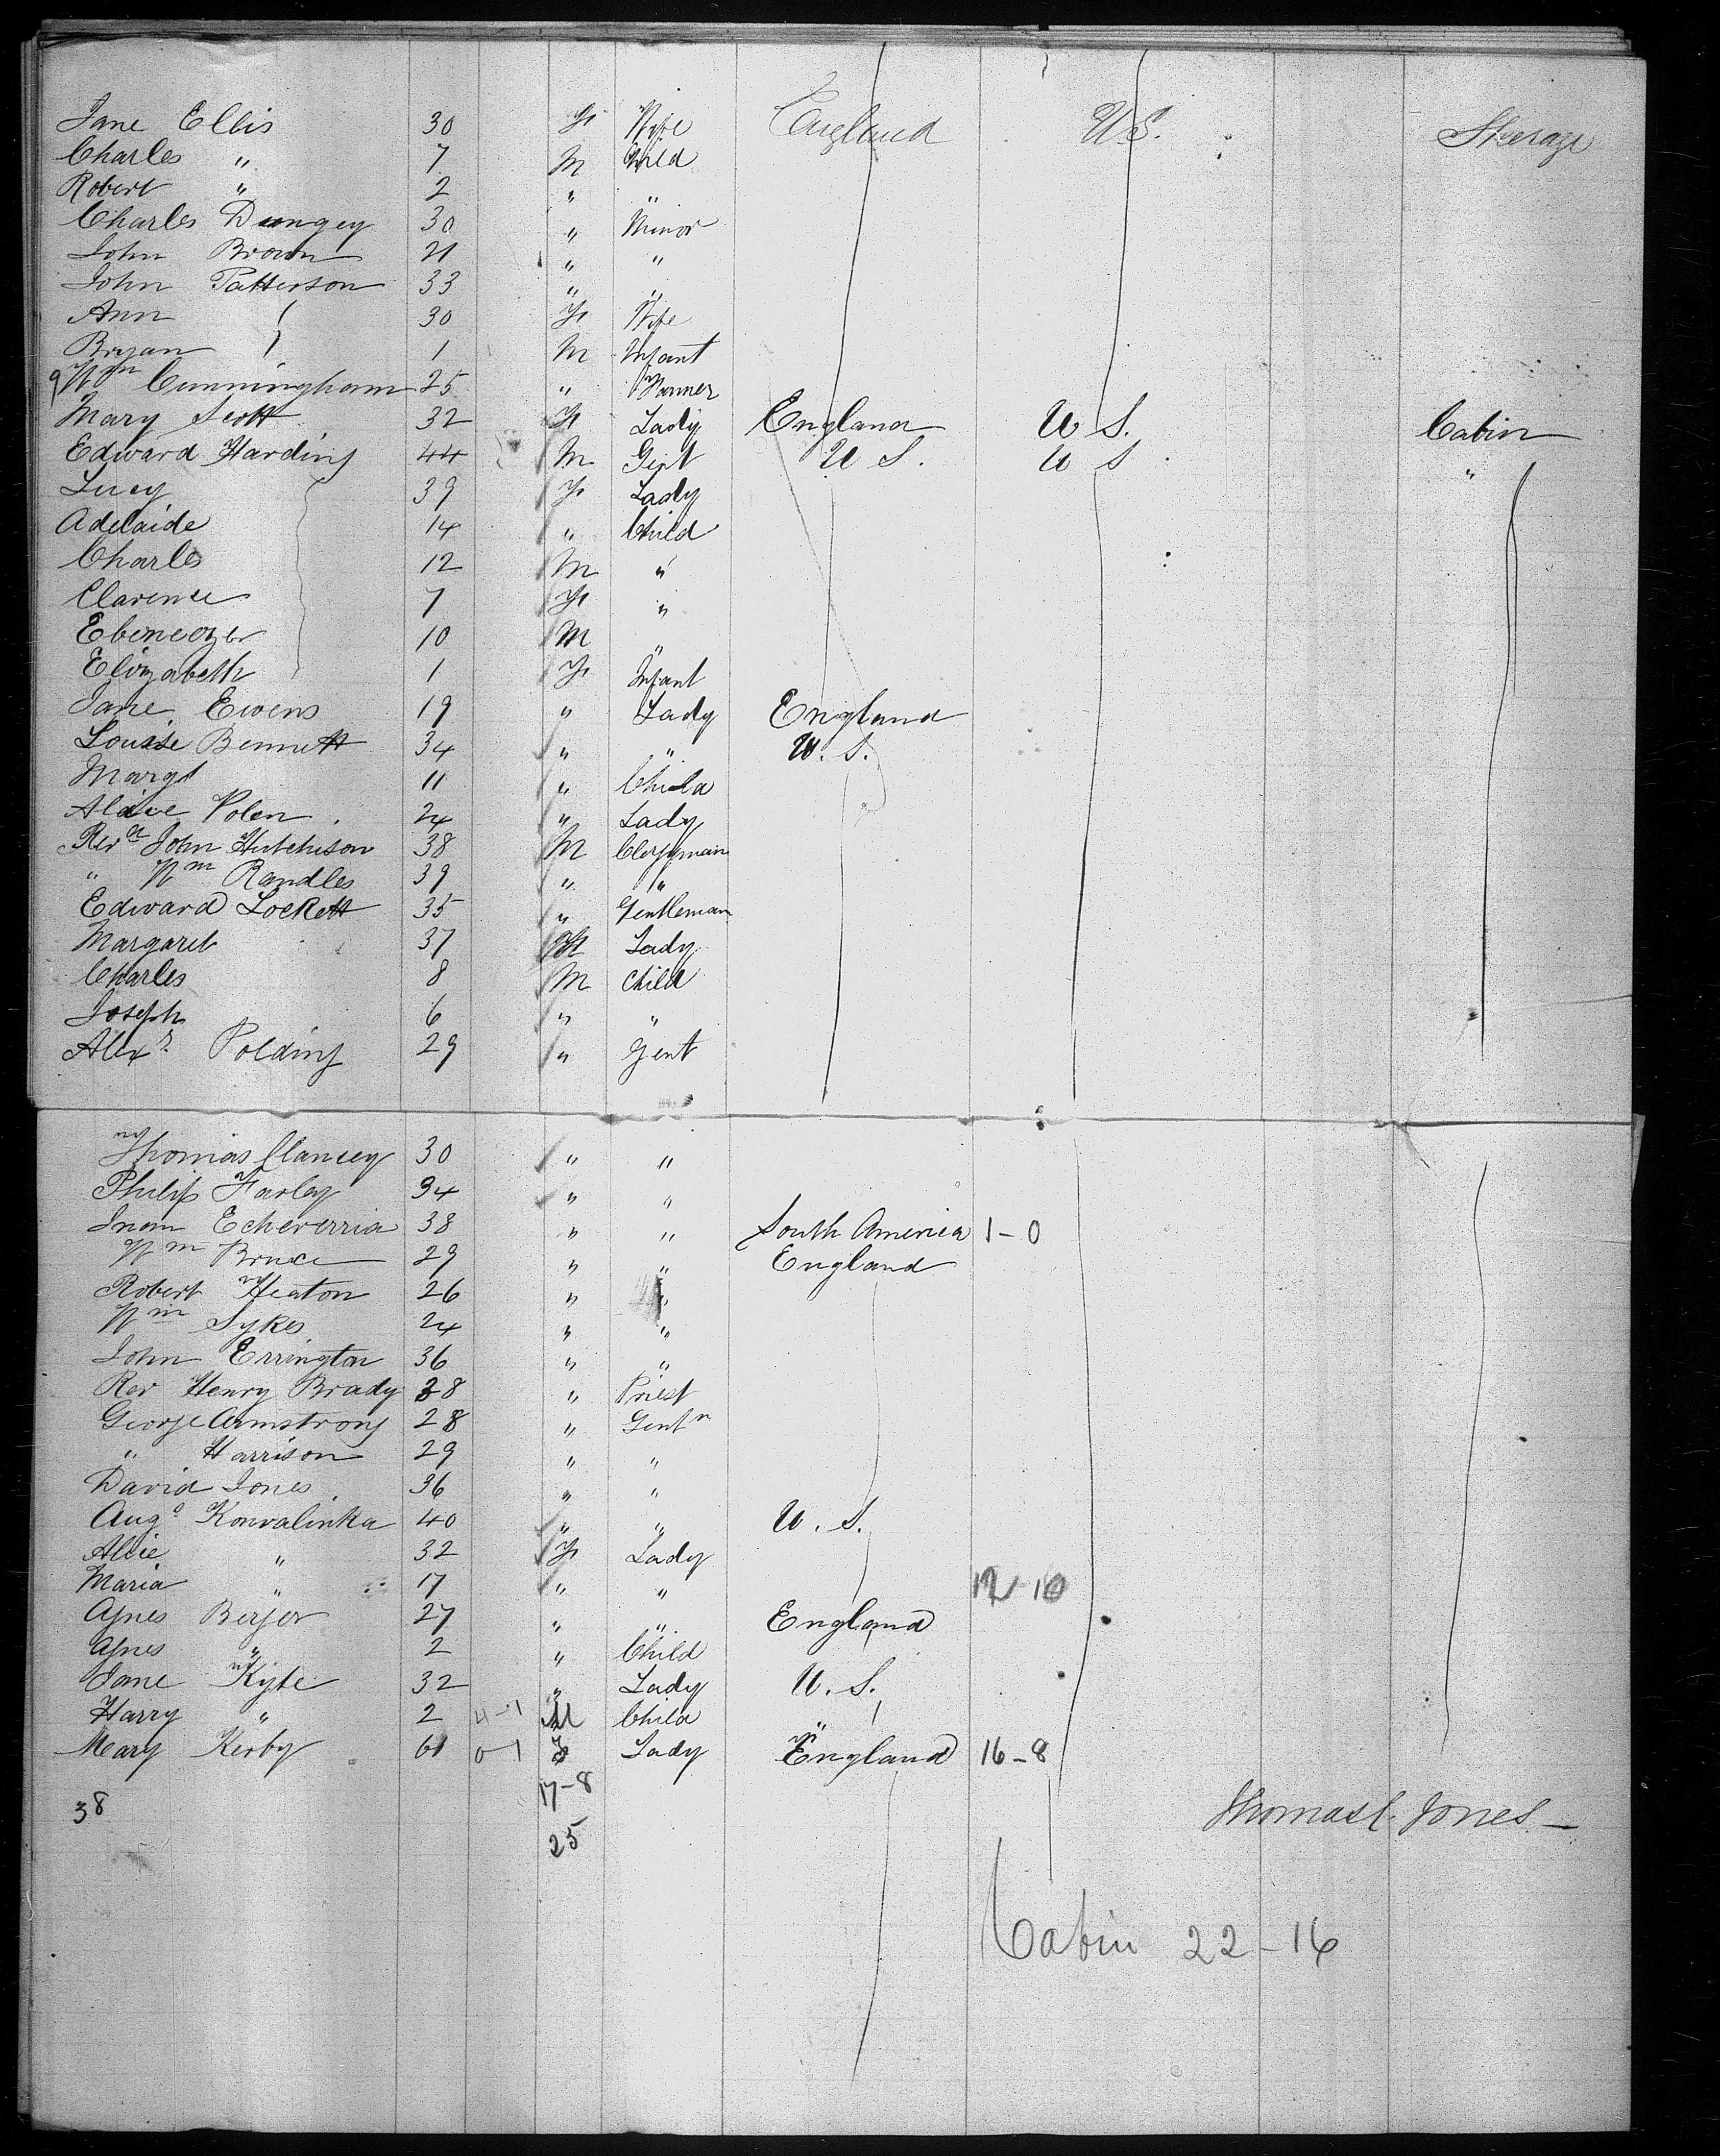 Jane Ellis 30 F Wife England U S. Steerage
Charles " 7 M Child
Robert " 2 " "
Charles Dungey 30 " Minor
John Brown 21 " "
John Patterson 33 " "
Ann 30 F Wife
Bryan 1 M Infant
9 Wm Cunningham 25 " Farmer
Mary Scott 32 F Lady England U S. Cabin
Edward Harding 44 M Gent U S. U S "
Lucy 39 F Lady
Adelaide 14 " Child
Charles 12 M "
Clarence 7 F "
Ebeneozer 10 M "
Elizabeth 1 F Infant
Jane Ewens 19 " Lady England
Louise Bennett 34 " " U. S.
Margt 11 " Child
Alice Polen 24 " Lady
Revd John Hutchison 38 M Clergyman
" Wm Randles 39 " "
Edward Lockett 35 " Gentleman
Margaret 37 F Lady
Charles 8 M Child
Joseph 6 " "
Alexr. Polding 29 " Gent
Thomas Clancey 30 " "
Philip Farley 34 " "
Echeverria 38 " " South America 1-0
Wm Bruce 29 " " England
Robert Heaton 26 " "
Wm Sykes 24 " "
John Errington 36 " "
Rev Henry Brady 38 " Priest
George Armstrong 28 " Gentn
" Harrison 29 " "
David Jones 36 " "
Augo Konvalinka 40 " " U. S.
Alice " 32 F Lady
Maria " 17 " " 12-10
Agnes Berjer 27 " " England
Agnes " 2 " Child
Jane Kyte 32 " Lady U. S.
Harry " 2 4-1 M Child "
Mary Kerby 61 0-1 F Lady England 16-8
17-8
38 Thomas C. Jones
25
Cabin 22-16